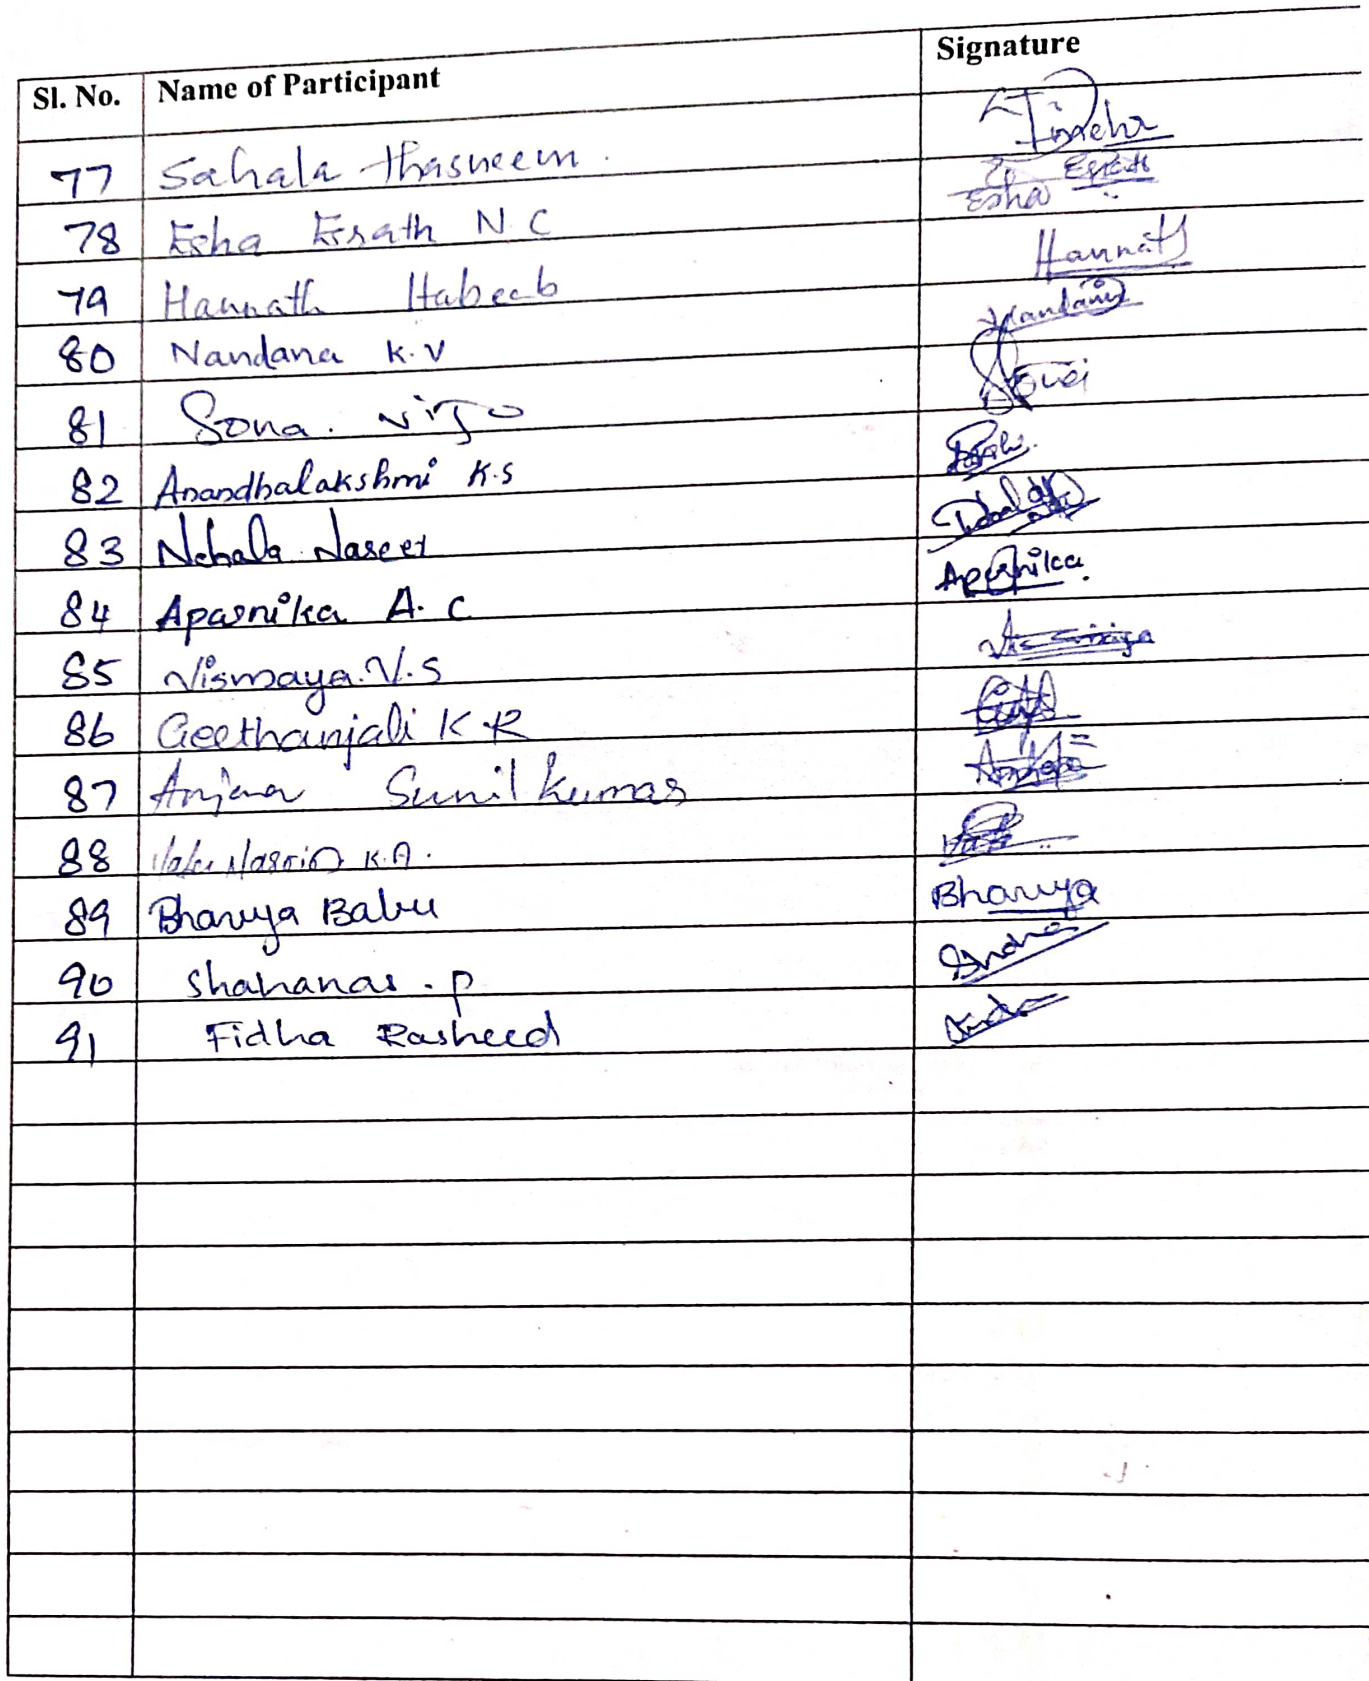 Sl. No. Name of Participant Signature
77 Sahala thasneem.
78 Esha Esrath N. C Esha
79 Hannath Habeeb Hannath
80 Nandana K.V Nandana
81 Sona. ViJo
82 Anandhalakshmi K.S
83 Nehala Naseer
84 Aparnika A. C Aparnika.
85 Vismaya. V. S
86 Geethanjali K R
87 Anjana Sunil kumar
88 K.A.
89 Bhavya Babu Bhavya
90 Shahanas. P
91 Fidha Rasheed